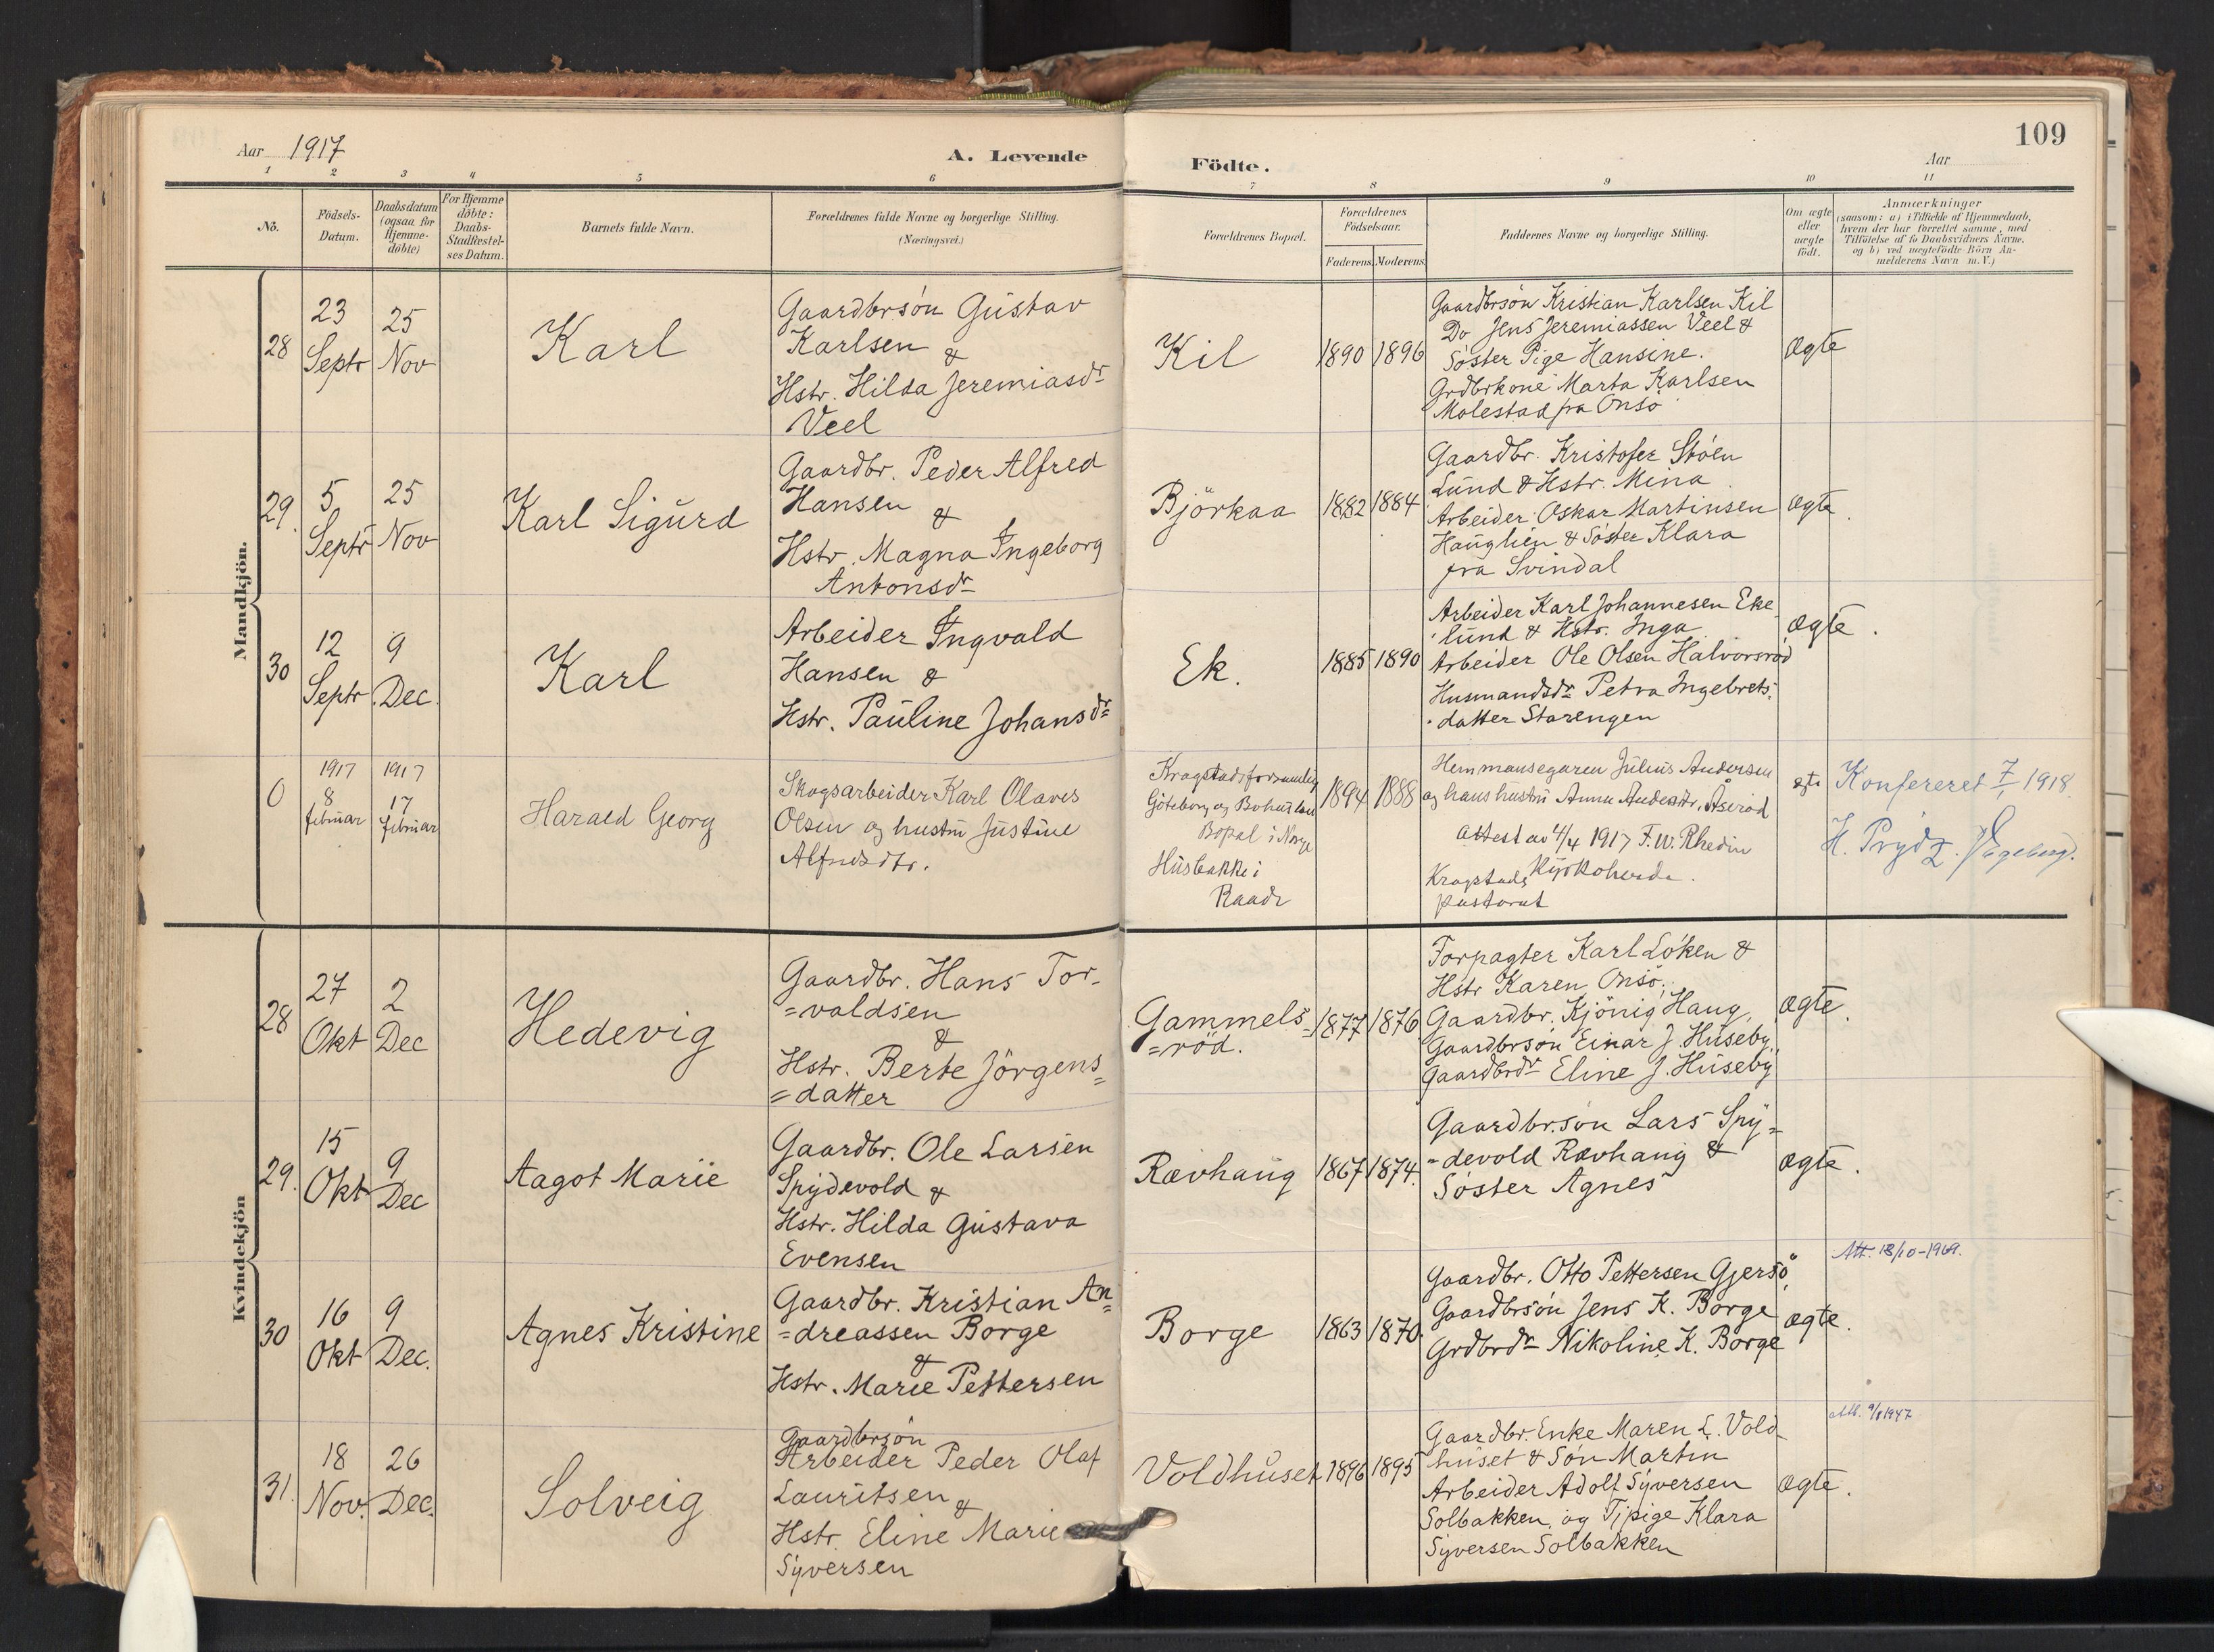 109
Aar 1917
A. Levende
Födte.
Aar
1 2 3 4 5 6 7 8 9 10 11
No.
Födsels-
Datum.
Daabsdatum
(ogsaa for
Hjemme-
döbte)
For Hjemme
döbte:
Daabs-
Stadfestel-
ses Datum.
Barnets fulde Navn.
Forældrenes fulde Navne og borgerlige Stilling.
(Næringsvei.)
Forældrenes Bopæl.
Forældrenes
Födselsaar.
Faderens. Moderens.
Faddernes Navne og borgerlige Stilling.
Om ægte
eller
uægte
födt.
Anmærkninger
(saasom: a) i Tilfælde af Hjemmedaab,
hvem der har forrettet samme, med
Tilföielse af to Daabsvidners Navne.
og b) ved uægtefödte Börn An-
melderens Navn m. V.)
Mandkjön.
28
23
Septr
25
Nov
Karl
Gaardbrsön Gustav
Karlsen &
Hstr. Hilda Jeremiasdr
Veel
Kil
1890 1896
Gaardbrsön Kristian Karlsen Kil
Do Jens Jeremiassen Veel &
Söster Pige Hansine.
Grdbrkone Marta Karlsen
Molestad fra Onsö
Ægte
29.
5
Septr
25
Nov
Karl Sigurd
Gaardbr. Peder Alfred
Hansen &
Hstr. Magna Ingeborg
Antonsdr
Björkaa
1882 1884
Gaardbr. Kristofer Stöen
Lund & Hstr. Mina
Arbeider Oskar Martinsen
Hauglien & Söster Klara
fra Svindal
Ægte.
30
12
Septr.
9
Dec.
Karl
Arbeider Ingvald
Hansen &
Hstr. Pauline Johansdr
Ek.
1885 1890
Arbeider Karl Johannesen Eke-
lund & Hstr. Inga
Arbeider Ole Olsen Halvorsröd
Husmandsdr Petra Ingebrets-
datter Starengen
Ægte.
0
1917
8
februar
1917
17
februar
Harald Georg
Skogsarbeider Karl Olaves
Olsen og hustru Justine
Alfredsdtr.
Krogstadsforsamling
Göteborg og Bohus län
Bopal i Norge
Husbakke i
Raade
1894 1888
Hemmansegaren Julius Andersen
og hans hustru Anna Andersdtr, Åseröd
Attest av 4/4 1917 F. W. Rhedin
Krogstads Kyrkoherde.
pastorat
egte
Konfereret 7/1 1918.
H. Prydz.
Kvindekjön
28
27
Okt
2
Dec
Hedevig
Gaardbr. Hans Tor-
=valdsen
&
Hstr. Berte Jörgens=
=datter
Gammels=
=röd.
1877 1876
Forpagter Karl Löken &
Hstr Karen, Onsö,
Gaardbr. Kjönig Haug,
Gaardbrsön Einar J. Huseby,
Gaardbrdr Eline J. Huseby
Ægte.
29.
15
Okt
9
Dec
Aagot Marie
Gaardbr. Ole Larsen
Spydevold &
Hstr. Hilda Gustava
Evensen
Rævhaug
1867 1874.
Gaardbr.sön Lars Spy=
=devold Rævhaug &
Söster Agnes
Ægte.
30
16
Okt
9
Dec.
Agnes Kristine
Gaardbr. Kristian An=
=dreassen Borge
&
Hstr. Marie Pettersen
Borge
1863 1870.
Gaardbr. Otto Pettersen Gjersö,
Gaardbrsön Jens K. Borge
Grdbrdr Nikoline K. Borge
Ægte.
Att. 13/10-1969.
31.
18
Nov.
26
Dec.
Solveig
Gaardbrsön
Arbeider Peder Olaf
Lauritsen &
Hstr. Eline Marie
Syversen
Voldhuset
1896 1895
Gaardbr.Enke Maren L. Vold-
huset & Sön Martin
Arbeider Adolf Syversen
Solbakken, og Tjpige Klara
Syversen Solbakken
Ægte.
Att. 9/8 1947